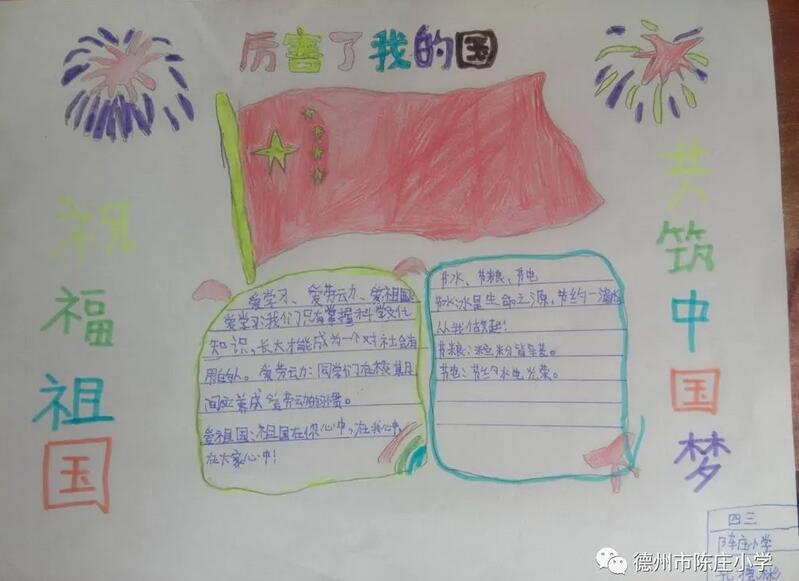 厉害了我的国
祝福祖国
共筑中国梦
爱学习、爱劳动、爱祖国
爱学习:我们只有掌握科学文化
知识,长大才能成为一个对社会有
用的人。爱劳动:同学们在校期
间应养成爱劳动的习惯。
爱祖国:祖国在你心中,在我心中,
在大家心中!
节水、节粮、节电
节水:水是生命之源,节约一滴
从我做起!
节粮:粒粒皆辛苦。
节电:节约水电光荣。
四三
陈庄小学
孔
德州市陈庄小学